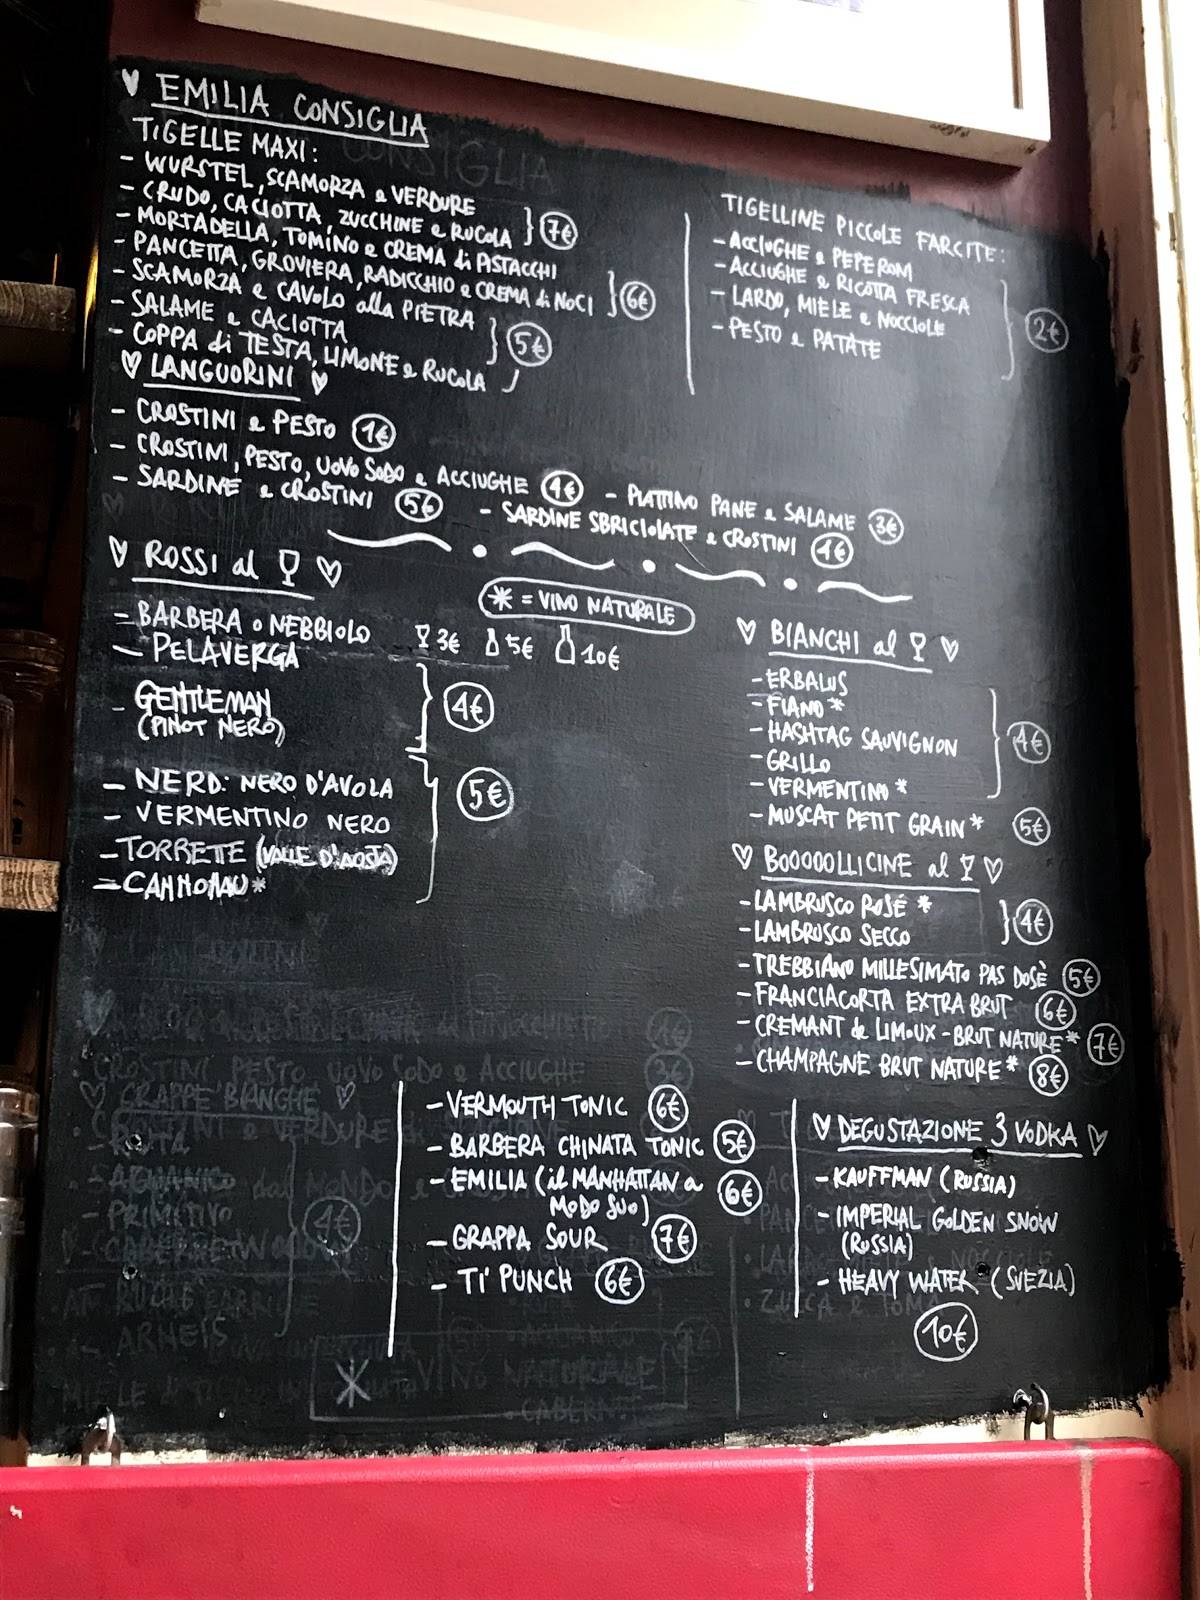 ♥ EMILIA CONSIGLIA
TIGELLE MAXI:
- WURSTEL, SCAMORZA e VERDURE
- CRUDO, CACIOTTA, ZUCCHINE e RUCOLA 7€
- MORTADELLA, TOMINO e CREMA di PISTACCHI
- PANCETTA, GROVIERA, RADICCHIO e CREMA di NOCI 6€
- SCAMORZA e CAVOLO alla PIETRA
- SALAME e CACIOTTA 5€
- COPPA di TESTA, LIMONE e RUCOLA
TIGELLINE PICCOLE FARCITE:
- ACCIUGHE e PEPERONI
- ACCIUGHE e RICOTTA FRESCA
- LARDO, MIELE e NOCCIOLE 2€
- PESTO e PATATE
♥ LANGUORINI ♥
- CROSTINI e PESTO 1€
- CROSTINI, PESTO, UOVO SODO e ACCIUGHE 4€ - PIATTINO PANE e SALAME 3€
- SARDINE e CROSTINI 5€ - SARDINE SBRICIOLATE e CROSTINI 4€
* = VINO NATURALE
♥ ROSSI al ♥
- BARBERA o NEBBIOLO 3€ 5€ 10€
- PELAVERGA
- GENTLEMAN 4€
(PINOT NERO)
- NERD: NERO D'AVOLA 5€
- VERMENTINO NERO
- TORRETE (VALLE D'AOSTA)
- CANNONAU *
♥ BIANCHI al ♥
- ERBALUS
- FIANO *
- HASHTAG SAUVIGNON 4€
- GRILLO
- VERMENTINO *
- MUSCAT PETIT GRAIN * 5€
♥ BOOOOOLLICINE al ♥
- LAMBRUSCO ROSÉ * 4€
- LAMBRUSCO SECCO
- TREBBIANO MILLESIMATO PAS DOSÈ 5€
- FRANCIACORTA EXTRA BRUT 6€
- CREMANT de LIMOUX - BRUT NATURE * 7€
- CHAMPAGNE BRUT NATURE * 8€
♥ GRAPPE BIANCHE ♥
- PRIMITIVO 4€
ARNEIS
- VERMOUTH TONIC 6€
- BARBERA CHINATA TONIC 5€
- EMILIA (il MANHATTAN a 6€
MODO SUO)
- GRAPPA SOUR 7€
- TI' PUNCH 6€
♥ DEGUSTAZIONE 3 VODKA ♥
- KAUFFMAN (RUSSIA)
- IMPERIAL GOLDEN SNOW
(RUSSIA)
- HEAVY WATER (SVEZIA)
10€
* VINO NATURALE